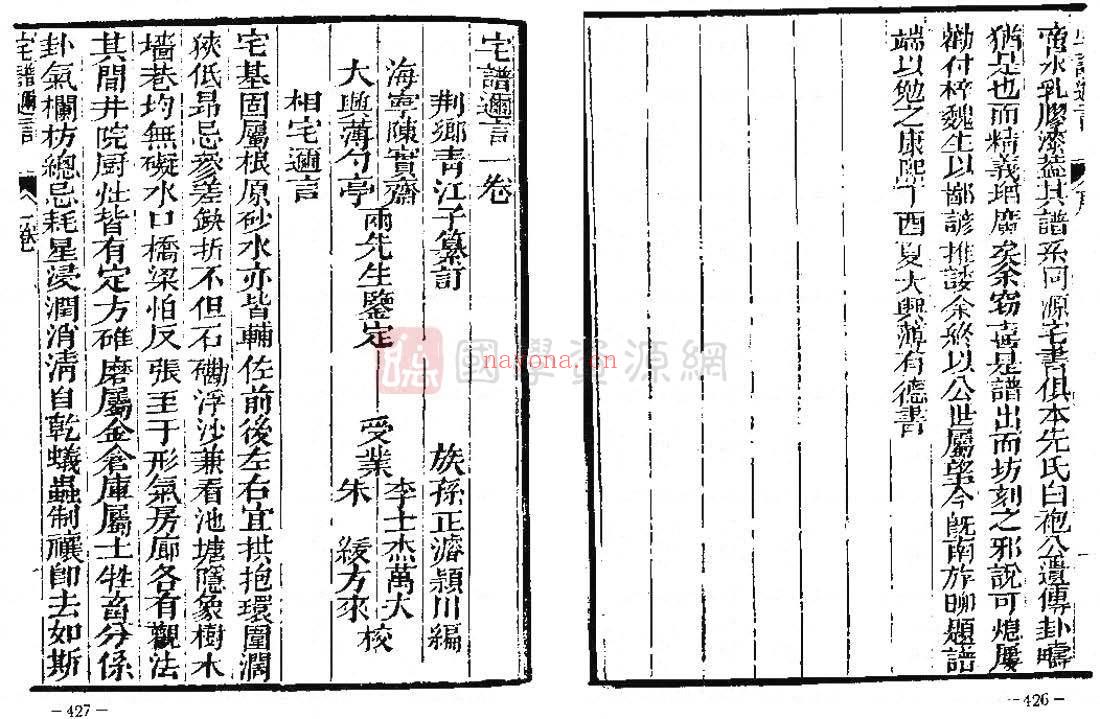 啻水乳膠漆葢其譜系同源宅書俱本先氏白袍公遺傳卦疇
猶是也而精義瑣廣矣余窃喜是譜出而坊刻之邪說可熄屢
勸付梓魏生以鄙諺推諉余終以公世屬望今旣南旋聊題譜
端以勉之康熙丁酉夏大興薄有德書
－426－
宅譜邇言一卷
荆鄉青江子纂訂
族孫正濬頴川編
海寧陳實齋
大興薄勺亭
兩先生鑒定
受業
李士杰萬大
朱 綬方來
校
相宅邇言
宅基固屬根原砂水亦皆輔佐前後左右宜拱抱環圍濶
狹低昂忌參差缺折不但石磡浮沙兼看池塘隱象樹木
墻巷均無礙水口橋梁怕反張至于形氣房廊各有觀法
其間井院厨灶皆有定方碓磨屬金倉庫屬土牲畜分係
卦氣欄枋總忌耗星浸潤消淸自乾蟻蟲制禳卽去如斯
宅譜邇言
一卷
－427－
國學資源網
nayona.cn